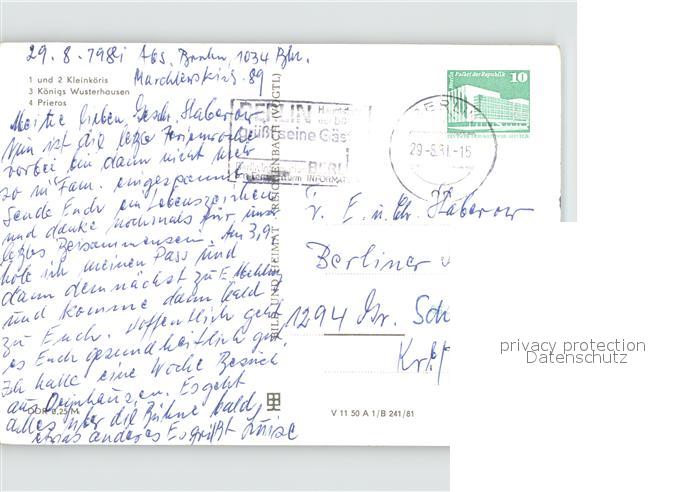 29.8.1981 Abs. 1034 Bln.
Marchlewskistr. 89
1 und 2 Kleinköris
3 Königs Wusterhausen
4 Prieros
Meine lieben Gesch. Haberow
Nun ist die letzte Ferienwoche
vorbei bin dann nicht mehr
so m. Fam. eingespannt
Sende Euch ein Lebenszeichen
und danke nochmals für unser
letztes Beisammensein. Am 3.9.
hole ich meinen Pass und
dann demnächst zu
und komme dann bald
zu Euch. Hoffentlich geht
es Euch gesundheitlich gut.
Ich hatte eine Woche Besuch
aus Oeynhausen. Es geht
alles über die Bühne bald
etwas anderes Es grüßt Luise
DDR 0,25 M
BILD UND HEIMAT REICHENBACH (VOGTL)
V 11 50 A 1/B 241/81
BERLIN
grüßt seine Gäste
BERLIN
INFORMAT
BERLIN
29-8.81-15
Berlin, Palast der Republik
10
DEUTSCHE DEMOKRATISCHE REPUBLIK
E. u. Ch. Haberow
Berliner
1294 Gr. Sch
privacy protection
Datenschutz